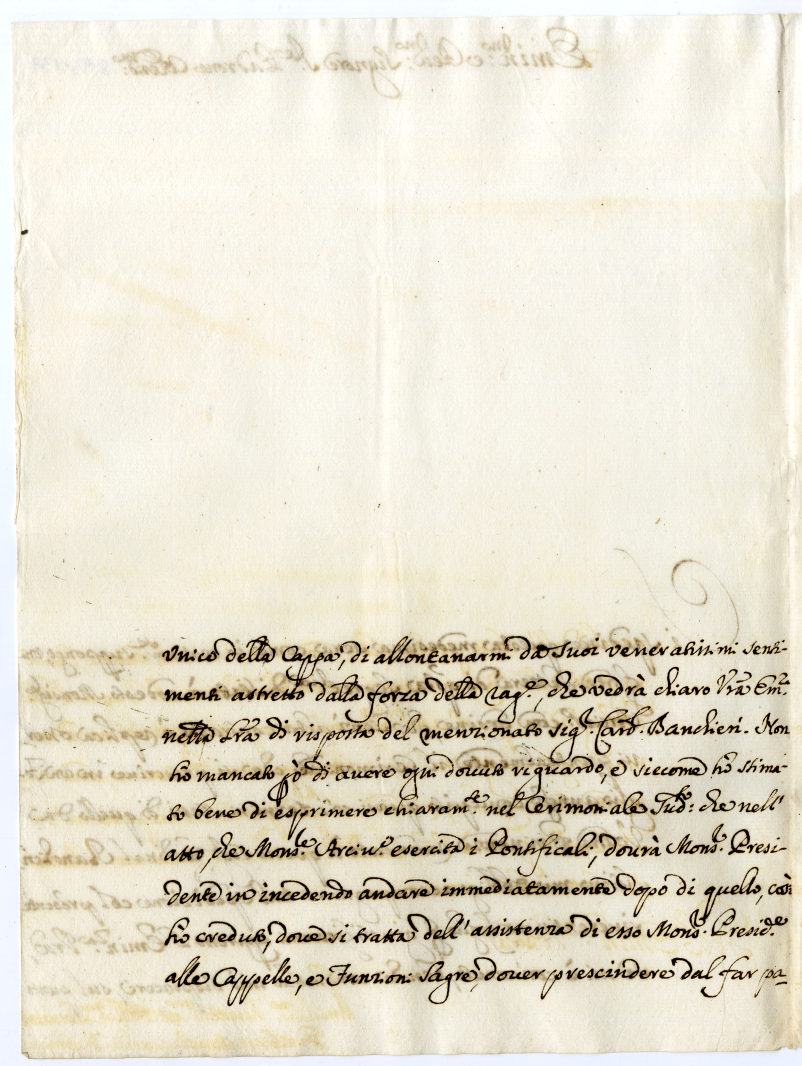 unico della Cappa, di allontanarmi da suoi veneratissimi senti-
menti astretto dalla forza della rag.e, che vedrà chiaro Vra Em.
nella Lra di risposta del menzionato Sig.r Card. Banchieri. Non
hò mancato però di avere ogni dovuto riguardo, e siccome hò stima-
to bene di esprimere chiaram.te nel Cerimoniale sud.o: che nell'
atto, che Mons.re Arciv.o esercita i Pontificali, dovrà Mons.r Presi-
dente in incedendo andare immediatamente dopo di quello, così
hò creduto, dove si tratta dell'assistenza di esso Mons.r Presid.e
alle Cappelle, e Funzioni Sagre, dover prescindere dal far pa-